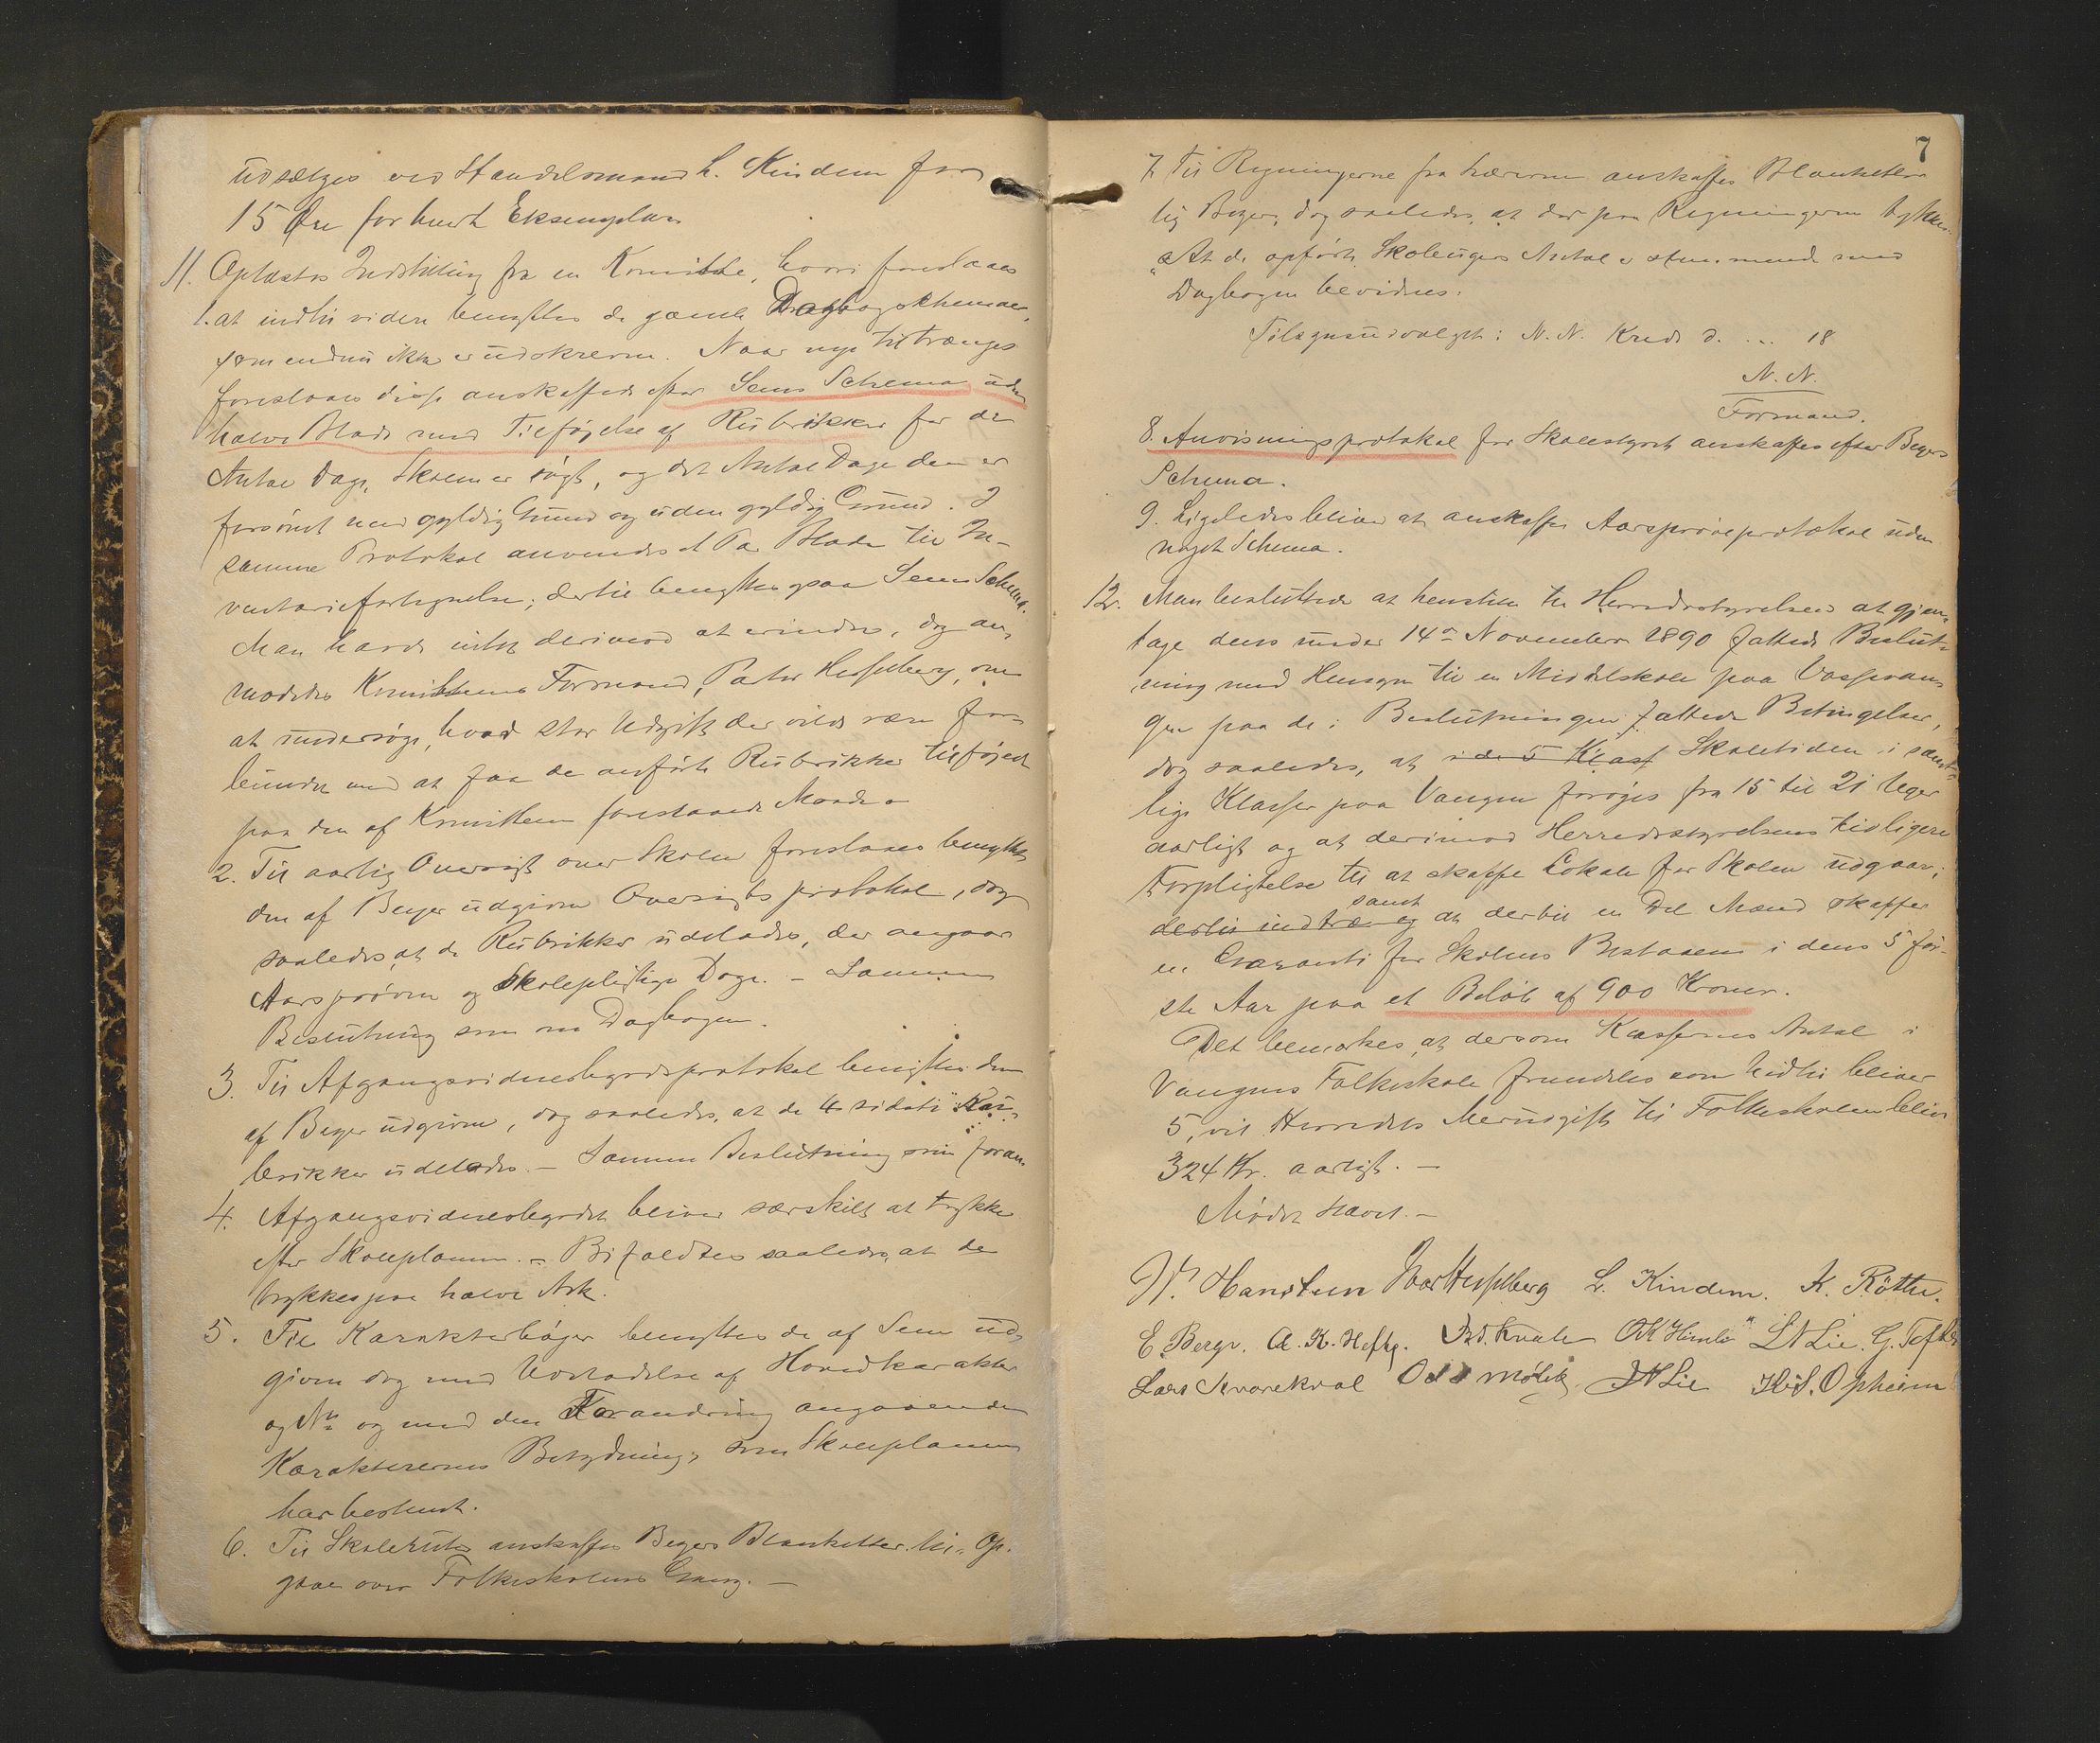 udsælges ved Handelsmand L. Kindem for
15 Øre for hvert Eksemplar
11. Oplæstes Indstilling fra en Komitee, hvori foreslaaes
1. at indtil videre benyttes de gamle Dagbogskhemaer,
som endnu ikke er udskrevne. Naar nye tiltrænges
foreslaaes disse anskaffede efter Sems Schema uden
halve Blade med Tilføjelse af Rubrikker for det
Antal Dage, Skolen er søgt, og det Antal Dage den er
forsømt med gyldig Grund og uden gyldig Grund. I
samme Protokol anvendes et Par Blade til In-
ventariefortegnelse; dertil benyttes ogsaa Sems Schema.
Man havde intet derimod at erindre, dog an-
modedes Komiteens Formand, Pastor Hesselberg, om
at undersøge, hvad stor Udgift der vilde være for-
bundet med at faa de anførte Rubrikker tilføjede
paa den af Komiteen foreslaaede Maade.
2. Til aarlig Oversigt over Skolen foreslaaes benyttet
den af Beyer udgivne Oversigtsprotokol, dog
saaledes, at de Rubrikker udelades, der angaar
Aarsprøven og Skolepligtige Dage. - Samme
Beslutning som om Dagbogen.
3. Til Afgangsvidnesbyrdsprotokol benyttes den
af Beyer udgivne, dog saaledes, at de 4 sidste Ru-
brikker udelades. - Samme Beslutning som foran.
4. Afgangsvidnesbyrdet bliver særskilt at trykke
efter Skoleplanen. - Bifaldtes saaledes, at de
trykkes paa halve Ark.
5. Til Karakterbøger benyttes de af Sem ud-
givne dog med Udeladelse af Hovedkarakter
og No og med den Forandring angaaende
Karakterernes Betydning, som Skoleplanen
har bestemt.
6. Til Skoleruter anskaffes Beyers Blanketter til Op-
gave over Folkeskolens Gang. -
7
7. Til Regningerne fra Lærerne anskaffes Blanketter
lig Beyers, dog saaledes, at der paa Regningerne trykkes
"At de opførte Skoleugers Antal er stemmende med
Dagbogen bevidnes.
Tilsynsudvalget i N. N. Kreds d. ... 18
N. N.
Formand.
8. Anvisningsprotokol for Skolestyret anskaffes efter Beyers
Schema.
9. Ligeledes bliver at anskaffe Aarsprøveprotokol uden
noget Schema.
12. Man besluttede at henstille til Herredsstyrelsen at gjen-
tage dens under 14de November 1890 fattede Beslut-
ning med Hensyn til en Middelskole paa Vossevan-
gen paa de i Beslutningen fattede Betingelser,
dog saaledes, at i de 5 Klas Skoletiden i samt-
lige Klasser paa Vangen forøges fra 15 til 21 Uger
aarligt og at derimod Herredsstyrelsens tidligere
Forpligtelse til at skaffe Lokale for Skolen udgaar;
samt
dertil indtræ og at dertil en Del Mænd skaffer
en Garanti for Skolens Bestaaen i dens 5 før-
ste Aar paa et Beløb af 900 Kroner.
Det bemærkes, at dersom Klassernes Antal i
Vangens Folkeskole fremdeles som hidtil bliver
5, vil Herredets Merudgift til Folkeskolen blive
324 Kr. aarligt. -
Mødet hævet. -
W. Hanssen Ivar Hesselberg L. Kindem. K. Röthe.
E Berge. A. K. Hefte. Bd. Knale OK Himle L N Lie. G. Tefte
Lars Kvarekval Odd Mølst N Lie K. S. Opheim